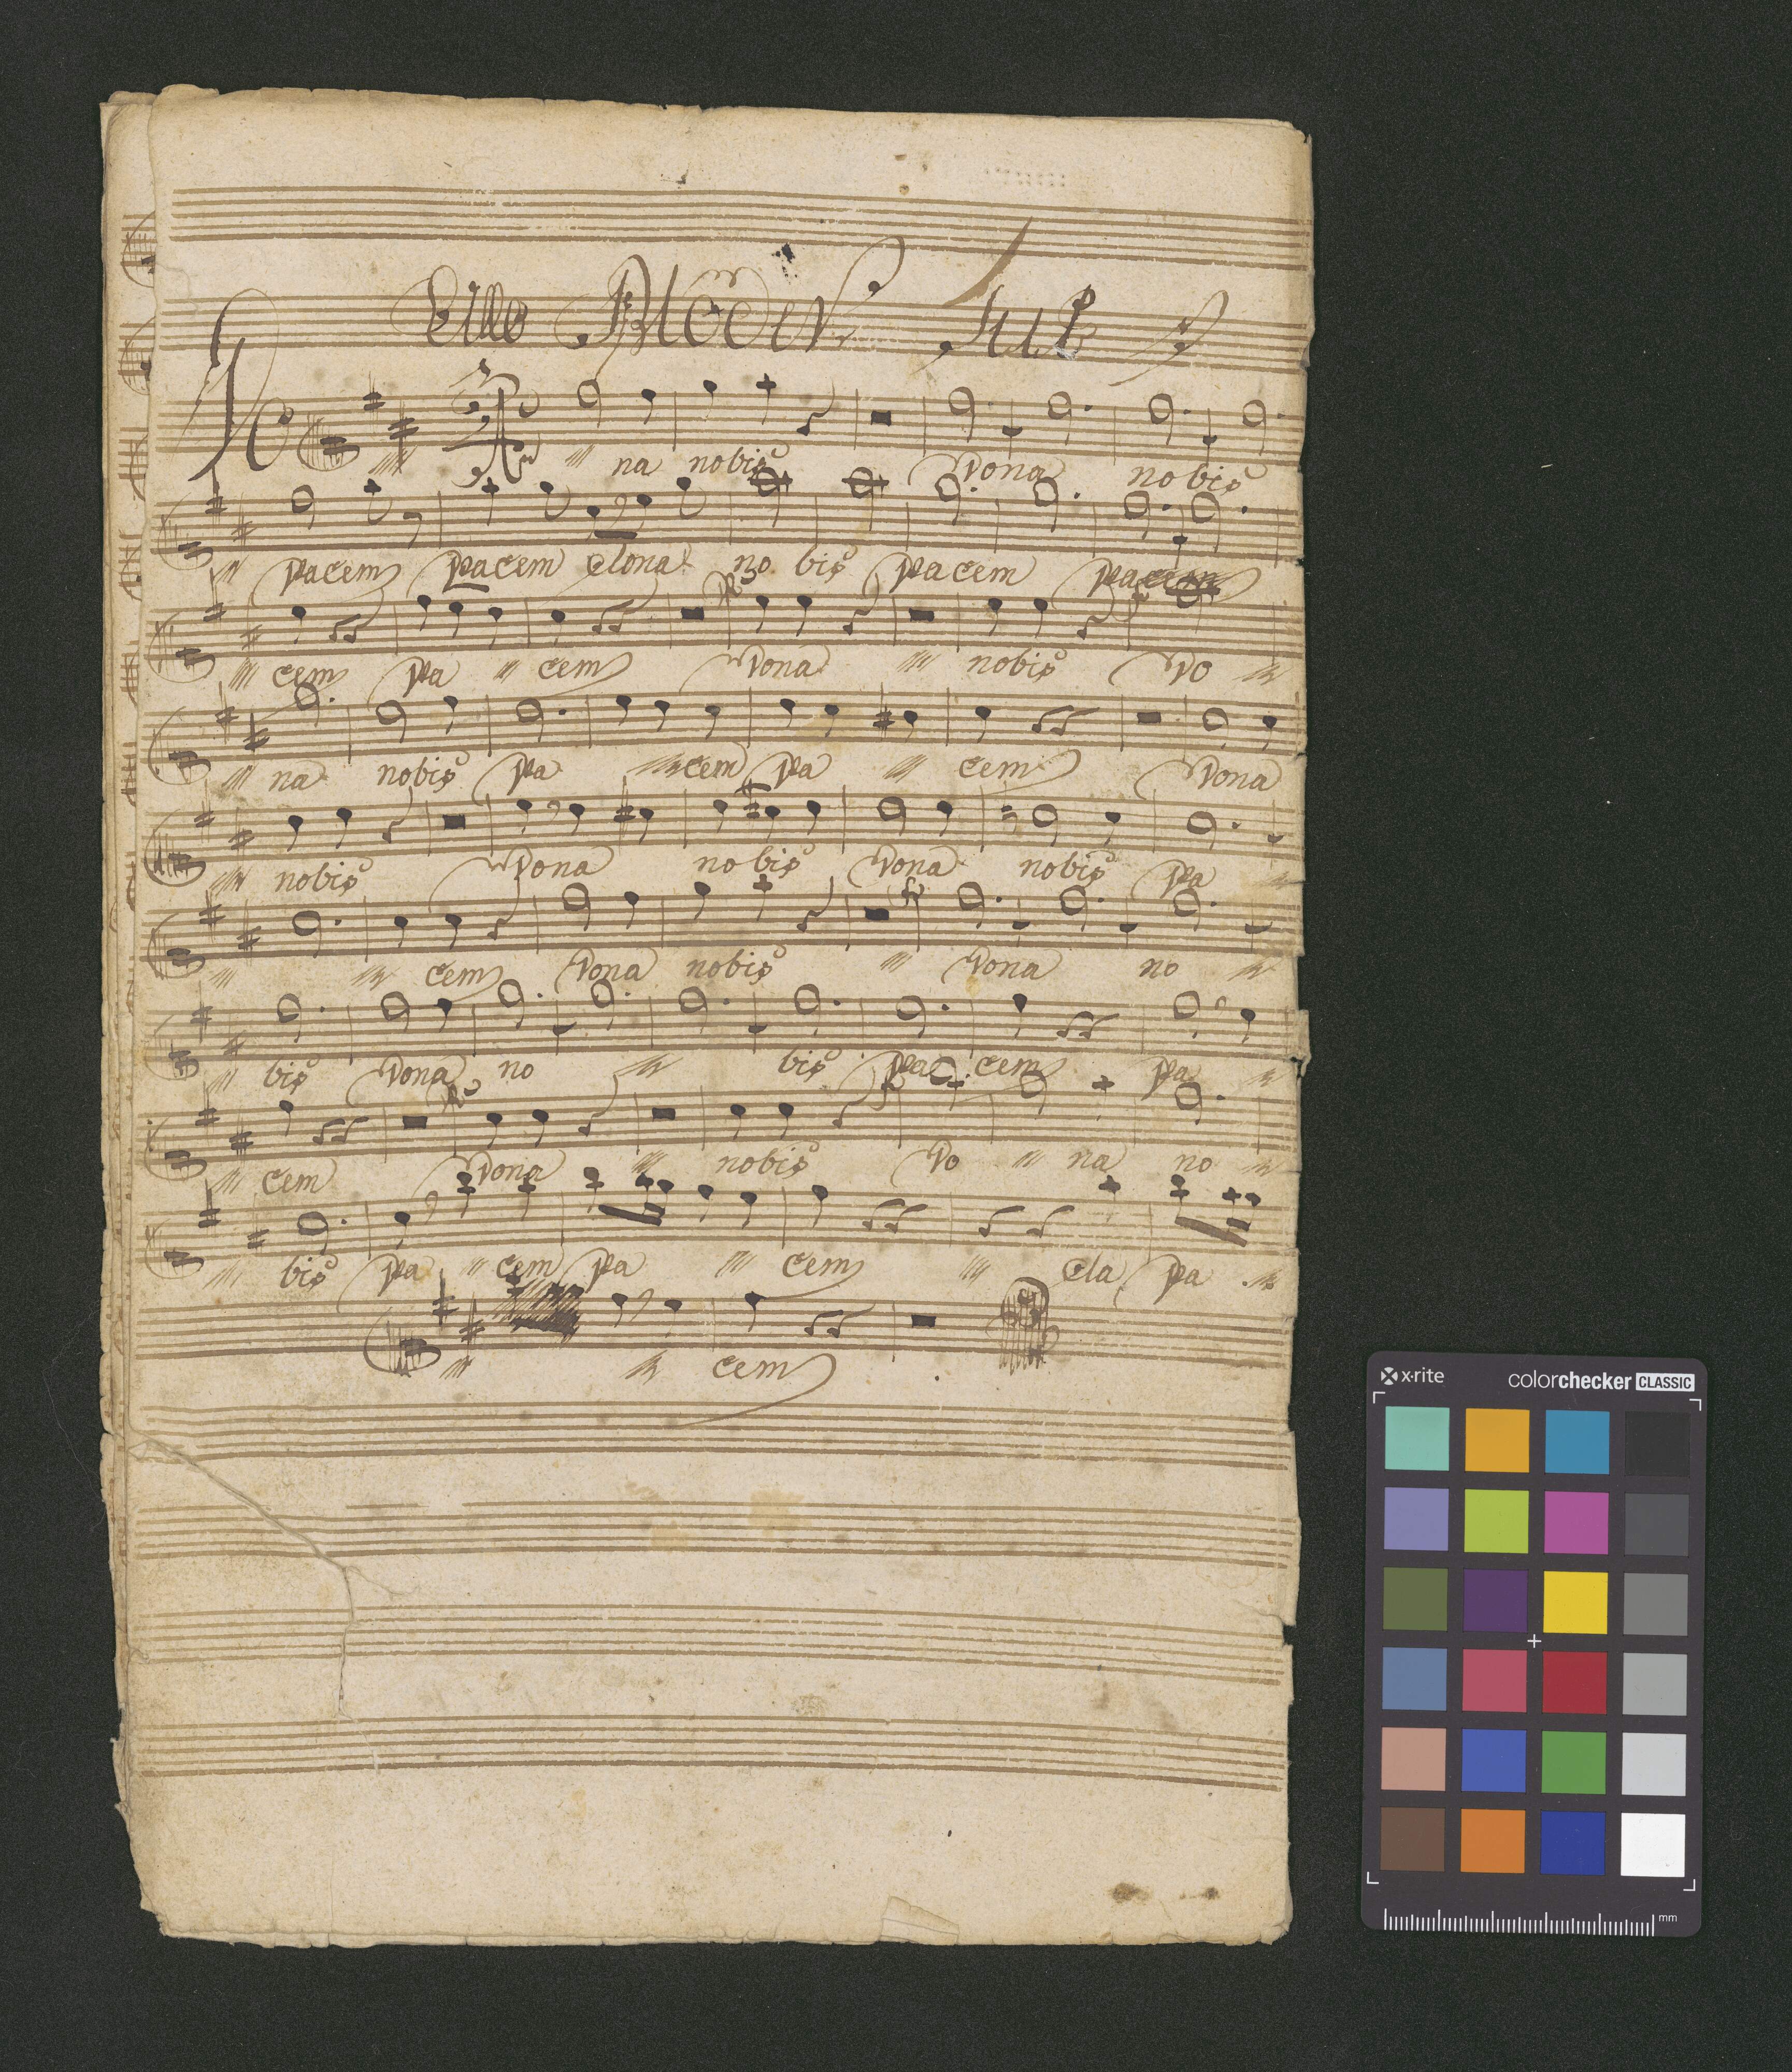 na nobis Dona nobis
pacem pacem dona no bis pacem pacem
cem pa cem Dona nobis Do
na nobis pa cem pa cem Dona
nobis Dona no bis Dona nobis pa
cem Dona nobis Dona no
bis Dona no bis pa cem pa
cem Dona nobis Do na no
bis pa cem pa cem pa
cem
x·rite colorchecker CLASSIC
mm